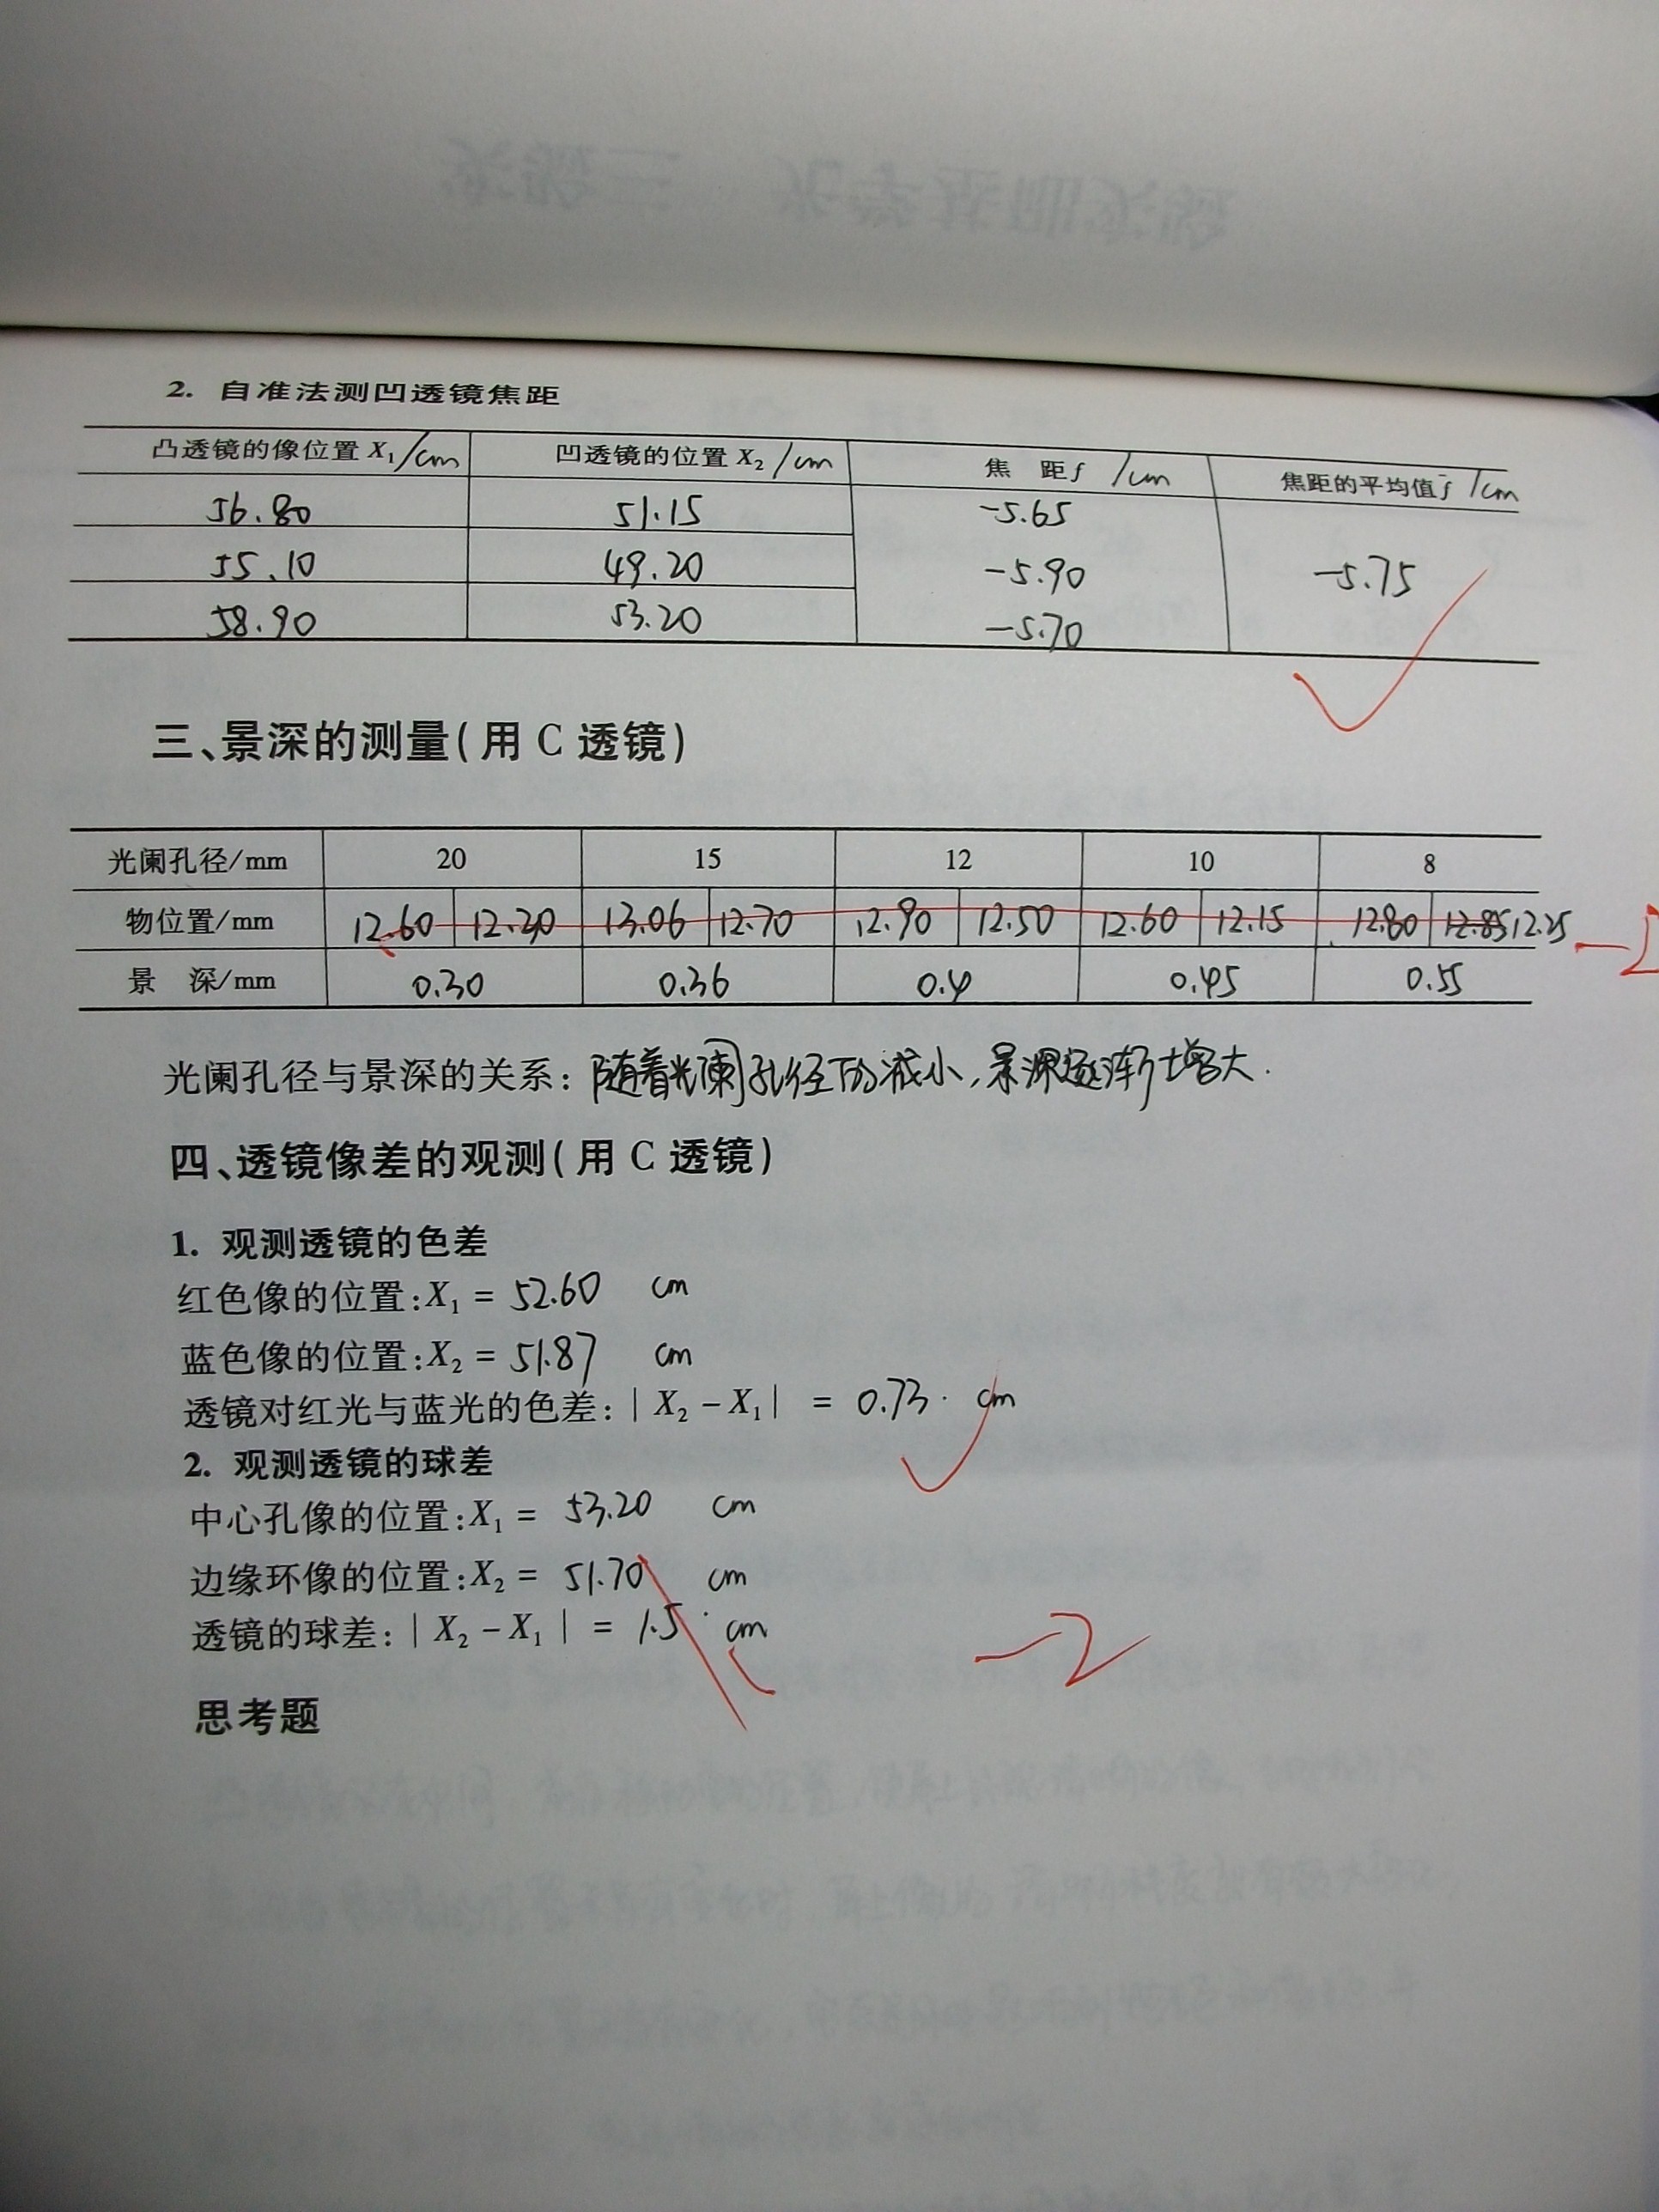 2. 自准法测凹透镜焦距
凸透镜的像位置 X₁/cm 凹透镜的位置 X₂/cm 焦 距 f /cm 焦距的平均值 f̄ /cm
56.80 51.15 -5.65
55.10 49.20 -5.90 -5.75
58.90 53.20 -5.70
三、景深的测量(用 C 透镜)
光阑孔径/mm 20 15 12 10 8
物位置/mm 12.60 12.30 13.06 12.70 12.90 12.50 12.60 12.15 12.80 12.85 12.25
景 深/mm 0.30 0.36 0.4 0.45 0.55
光阑孔径与景深的关系: 随着光阑孔径的减小,景深逐渐增大.
四、透镜像差的观测(用 C 透镜)
1. 观测透镜的色差
红色像的位置:X₁ = 52.60 cm
蓝色像的位置:X₂ = 51.87 cm
透镜对红光与蓝光的色差:| X₂ - X₁| = 0.73 cm
2. 观测透镜的球差
中心孔像的位置:X₁ = 53.20 cm
边缘环像的位置:X₂ = 51.70 cm
透镜的球差:| X₂ - X₁ | = 1.5 cm
-2
思考题